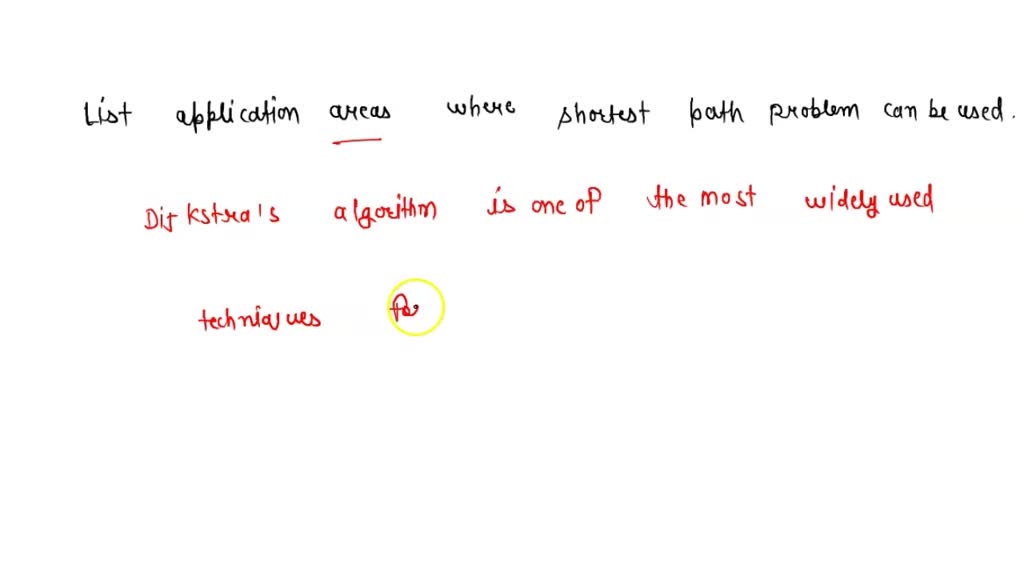 List application areas where shortest path problem can be used.
Dijkstra's algorithm is one of the most widely used
techniques